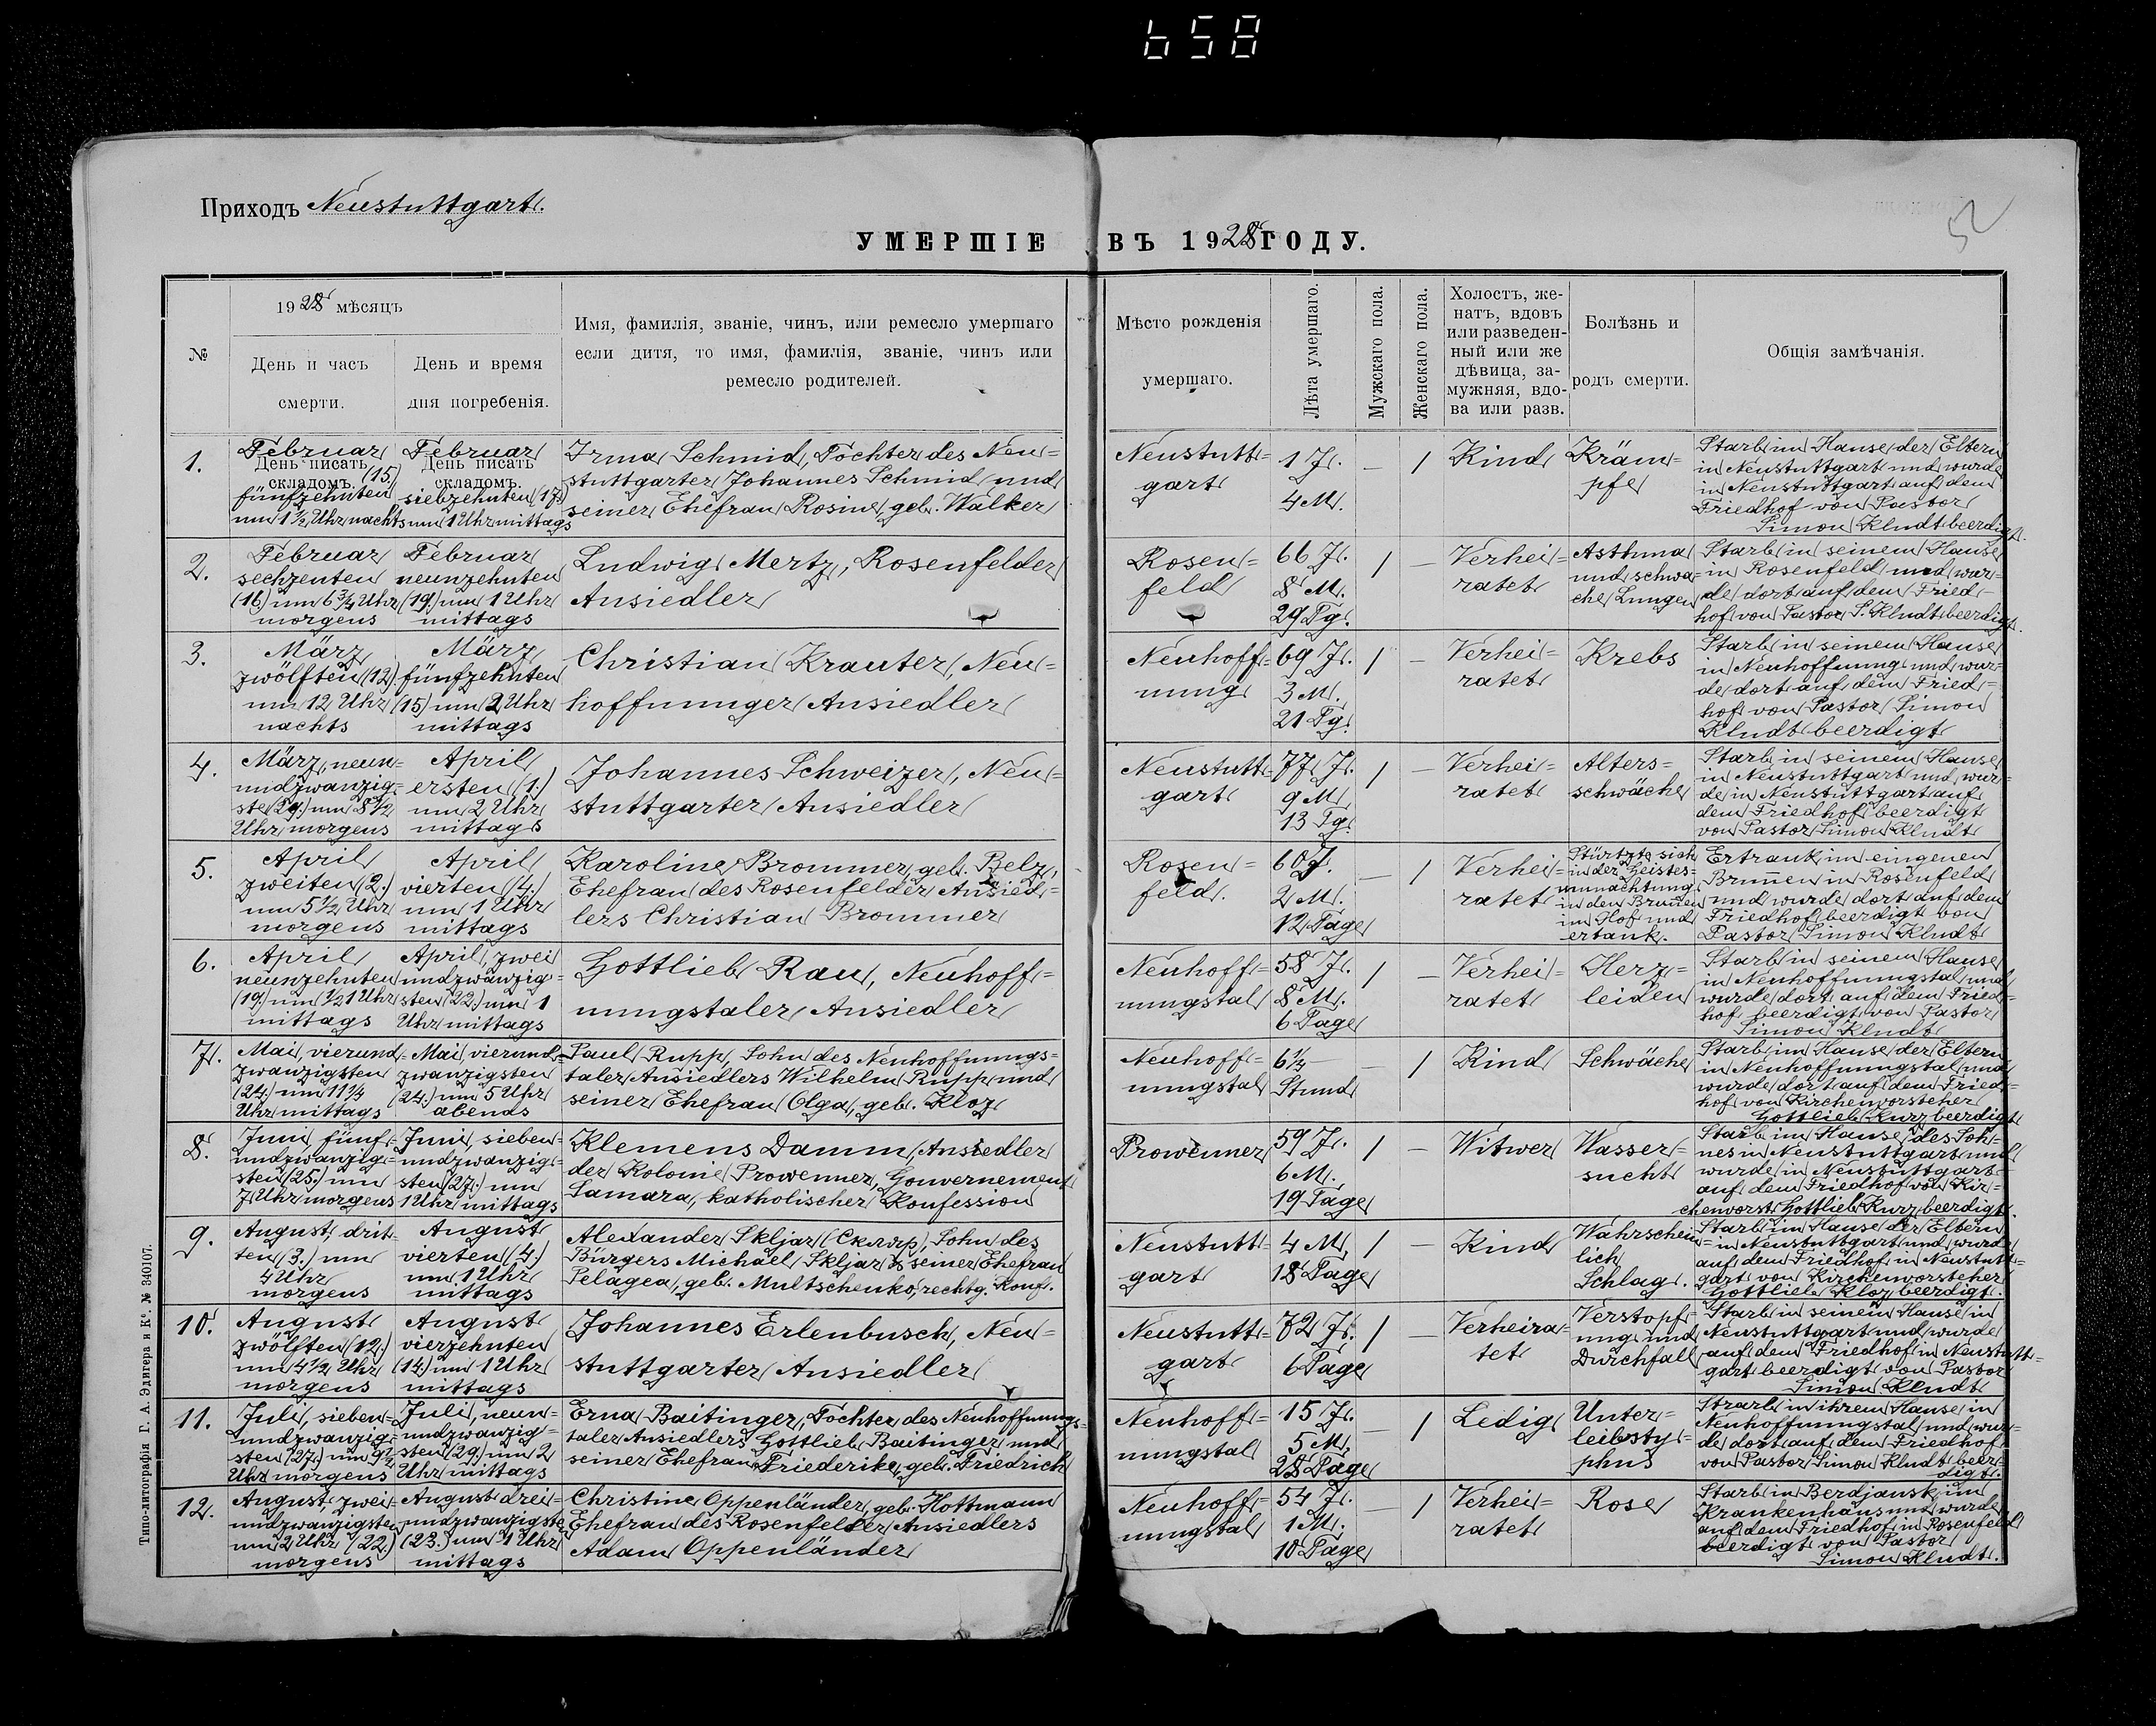 658
Приходъ Neustuttgart.
52
УМЕРШІЕ ВЪ 1928 ГОДУ.
№
1928 мѣсяцъ
День и часъ
смерти.
День и время
дня погребенія.
Имя, фамилія, званіе, чинъ, или ремесло умершаго
если дитя, то имя, фамилія, званіе, чинъ или
ремесло родителей.
Мѣсто рожденія
умершаго.
Лѣта умершаго.
Мужскаго пола.
Женскаго пола.
Холостъ, же-
натъ, вдовъ
или разведен-
ный или же
дѣвица, за-
мужняя, вдо-
ва или разв.
Болѣзнь и
родъ смерти.
Общія замѣчанія.
1.
Februar
День писать
складомъ. (15.)
fünfzehnten
um 1½ Uhr nachts
Februar
День писать
складомъ.
siebzehnten (17.)
um 1 Uhr mittags
Irma Schmid, Tochter des Neu=
stuttgarter Johannes Schmid und
seiner Ehefrau Rosine, geb. Walker
Neustutt=
gart
1 J.
4 M.
— 1
Kind
Kräm=
pfe
Starb im Hause der Eltern
in Neustuttgart und wurde
in Neustuttgart auf dem
Friedhof von Pastor
Simon Kludt beerdigt.
2.
Februar
sechzenten
(16) um 6¾ Uhr
morgens
Februar
neunzehnten
(19.) um 1 Uhr
mittags
Ludwig Mertz, Rosenfelder
Ansiedler
Rosen=
feld
66 J.
8 M.
29 Tg.
1 —
Verhei=
ratet
Asthma
und schwa=
che Lungen
Starb in seinem Hause
in Rosenfeld und wur=
de dort auf dem Fried=
hof von Pastor S. Kludt beerdigt.
3.
März
zwölften (12)
um 12 Uhr
nachts
März
fünfzehnten
(15) um 2 Uhr
mittags
Christian Krauter, Neu=
hoffnunger Ansiedler
Neuhoff=
nung
69 J.
3 M.
21 Tg.
1 —
Verhei=
ratet
Krebs
Starb in seinem Hause
in Neuhoffnung und wur=
de dort auf dem Fried=
hof von Pastor Simon
Kludt beerdigt
4.
März, neun=
undzwanzig=
ste (29.) um 8½
Uhr morgens
April
ersten (1.)
um 2 Uhr
mittags
Johannes Schweizer, Neu=
stuttgarter Ansiedler
Neustutt=
gart
77 J.
9 M.
13 Tg.
1 —
Verhei=
ratet
Alters=
schwäche
Starb in seinem Hause
in Neustuttgart und wur=
de in Neustuttgart auf
dem Friedhof beerdigt
von Pastor Simon Kludt
5.
April
zweiten (2.)
um 5½ Uhr
morgens
April
vierten (4.)
um 1 Uhr
mittags
Karoline Brommer, geb. Belz,
Ehefrau des Rosenfelder Ansied=
lers Christian Brommer
Rosen=
feld.
60 J.
2 M.
12 Tage
— 1
Verhei=
ratet
Stürtzte sich
in der Geistes=
umnachtung
in den Brunnen
im Hof und
ertank.
Ertrank im eingenen
Brunnen in Rosenfeld
und wurde dort auf dem
Friedhof beerdigt von
Pastor Simon Kludt
6.
April
neunzehnten
(19.) um ½1 Uhr
mittags
April, zwei
undzwanzig=
sten (22.) um 1
Uhr mittags
Gottlieb Rau, Neuhoff=
nungstaler Ansiedler
Neuhoff=
nungstal
58 J.
8 M.
6 Tage
1 —
Verhei=
ratet
Herz=
leiden
Starb in seinem Hause
in Neuhoffnungstal und
wurde dort auf dem Fried=
hof beerdigt von Pastor
Simon Kludt
7.
Mai, vierund=
zwanzigsten
(24.) um 11¼
Uhr mittags
Mai vierund=
zwanzigsten
(24.) um 5 Uhr
abends
Paul Rupp, Sohn des Neuhoffnungs=
taler Ansiedlers Wilhelm Rupp und
seiner Ehefrau Olga, geb. Kloz
Neuhoff=
nungstal
6½
Stund
— 1
Kind
Schwäche
Starb im Hause der Eltern
in Neuhoffnungstal und
wurde dort auf dem Fried=
hof von Kirchenvorsteher
Gottlieb Kurz beerdigt
8.
Juni fünf=
undzwanzig=
sten (25.) um
7 Uhr morgens
Juni, sieben=
undzwanzig=
sten (27.) um
1 Uhr mittags
Klemens Damm, Ansiedler
der Kolonie Prowenner, Gouvernement
Samara, katholischer Konfession
Prowenner
59 J.
6 M.
19 Tage
1 —
Witwer
Wasser=
sucht
Starb im Hause des Soh=
nes in Neustuttgart und
wurde in Neustuttgart
auf dem Friedhof von Kir=
chenvorst. Gottlieb Kurz beerdigt.
9.
August, drit=
ten (3.) um
4 Uhr
morgens
August
vierten (4.)
um 1 Uhr
mittags
Alexander Skljar (Скляр), Sohn des
Bürgers Michael Skljar & seiner Ehefrau
Pelagea, geb. Multschenko, rechtg. Konf.
Neustutt=
gart
4 M.
18 Tage
1 —
Kind
Wahrschein=
lich
Schlag.
Starb im Hause der Eltern
in Neustuttgart und wurde
auf dem Friedhof in Neustutt=
gart von Kirchenvorsteher
Gottlieb Kloz beerdigt.
10.
August
zwölften (12.)
um 4½ Uhr
morgens
August
vierzehnten
(14.) um 1 Uhr
mittags
Johannes Erlenbusch, Neu=
stuttgarter Ansiedler
Neustutt=
gart
72 J.
6 Tage
1 —
Verheira=
tet
Verstopf=
ung und
Durchfall
Starb in seinem Hause in
Neustuttgart und wurde
auf dem Friedhof in Neustutt=
gart beerdigt von Pastor
Simon Kludt
11.
Juli, sieben=
undzwanzig=
sten (27.) um 9½
Uhr morgens
Juli, neun=
undzwanzig=
sten (29.) um 2
Uhr mittags
Erna Baitinger, Tochter des Neuhoffnungs=
taler Ansiedlers Gottlieb Baitinger und
seiner Ehefrau Friederike, geb. Friedrich
Neuhoff=
nungstal
15 J.
5 M.
28 Tage
— 1
Ledig
Unter=
leibsty=
phus
Strarb in ihrem Hause in
Neuhoffnungstal und wur=
de dort auf dem Friedhof
von Pastor Simon Kludt beer=
digt.
12.
August, zwei=
undzwanzigsten
um 2 Uhr (22.)
morgens
August drei=
undzwanzigste
(23.) um 1 Uhr
mittags
Christine Oppenländer, geb. Hottmann
Ehefrau des Rosenfelder Ansiedlers
Adam Oppenländer
Neuhoff=
nungstal
54 J.
1 M.
10 Tage
— 1
Verhei=
ratet
Rose
Starb in Berdjansk im
Krankenhaus und wurde
auf dem Friedhof in Rosenfeld
beerdigt von Pastor
Simon Kludt.
Типо-литографія Г. А. Эдигера и Кº. № 340107.